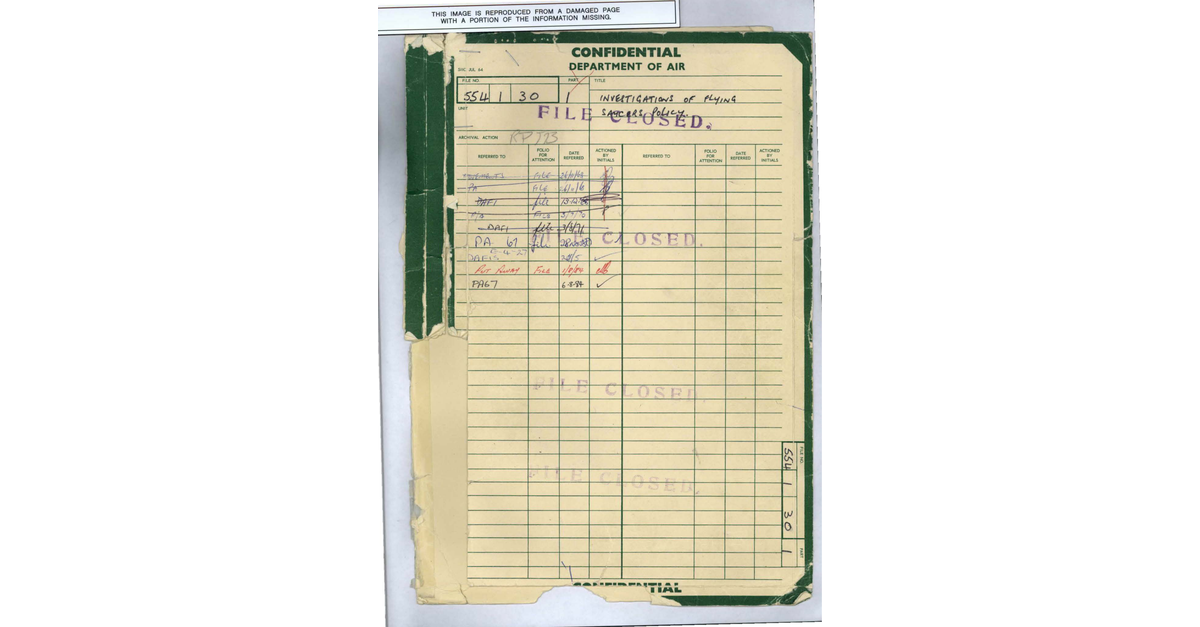 THIS IMAGE IS REPRODUCED FROM A DAMAGED PAGE
WITH A PORTION OF THE INFORMATION MISSING.
CONFIDENTIAL
DEPARTMENT OF AIR
FILE NO. PART TITLE
554 1 30 1 INVESTIGATIONS OF FLYING
SAUCERS POLICY.
UNIT
FILE CLOSED.
ARCHIVAL ACTION
REFERRED TO FOLIO FOR ATTENTION DATE REFERRED ACTIONED BY INITIALS REFERRED TO FOLIO FOR ATTENTION DATE REFERRED ACTIONED BY INITIALS
FILE
PA FILE
DAFI file
FILE
DAFI file
PA 67 file
CLOSED.
PUT AWAY FILE
PA67 6-8-84
FILE CLOSED.
FILE CLOSED.
FILE NO.
554 1 30 1
PART
CONFIDENTIAL